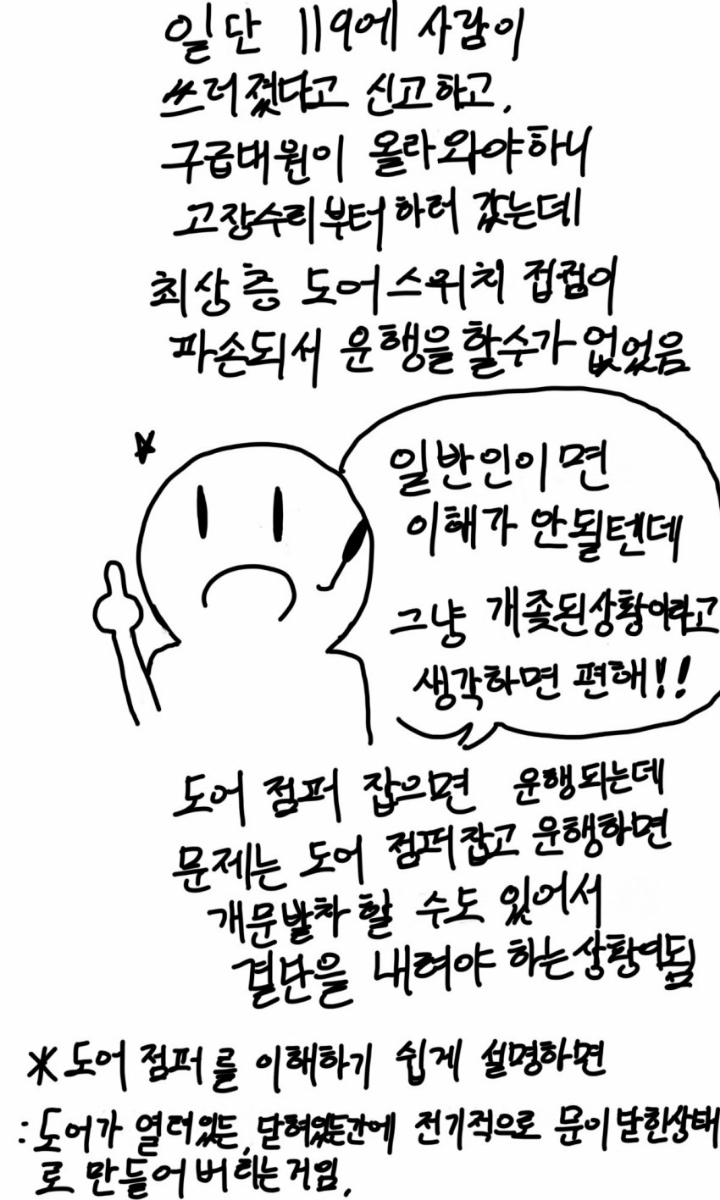 일단 119에 사람이
쓰러졌다고 신고하고,
구급대원이 올라와야하니
고장수리부터 하러 갔는데
최상층 도어스위치 접점이
파손되서 운행을 할수가 없었음
일반인이면
이해가 안될텐데
그냥 개좆된상황이라고
생각하면 편해!!
도어 점퍼 잡으면 운행되는데
문제는 도어 점퍼잡고 운행하면
개문발차 할 수도 있어서
결단을 내려야 하는상황이됨
*도어 점퍼를 이해하기 쉽게 설명하면
:도어가 열려있든, 닫혀있든간에 전기적으로 문이 닫힌상태
로 만들어버리는거임,